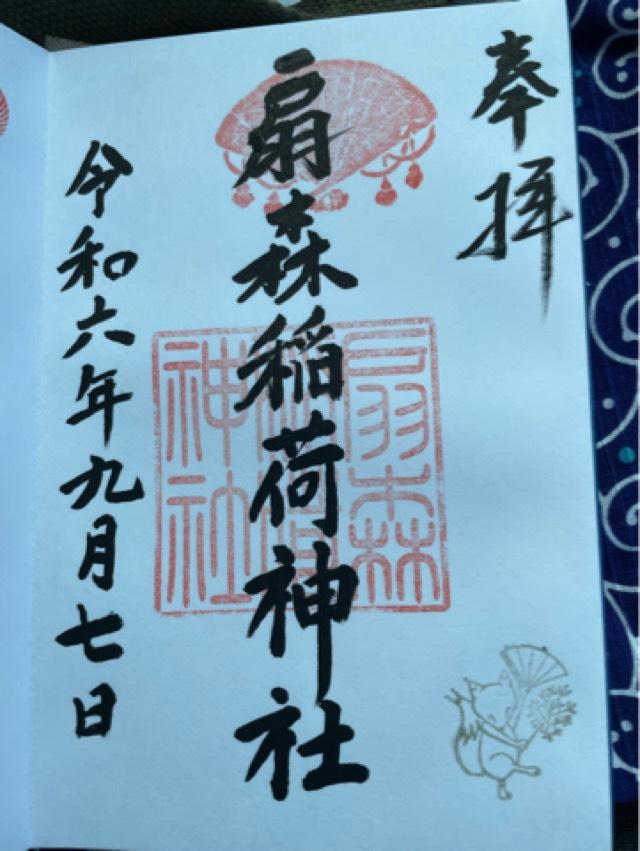 奉拝
扇森稲荷神社
扇森
稲荷
神社
令和六年九月七日